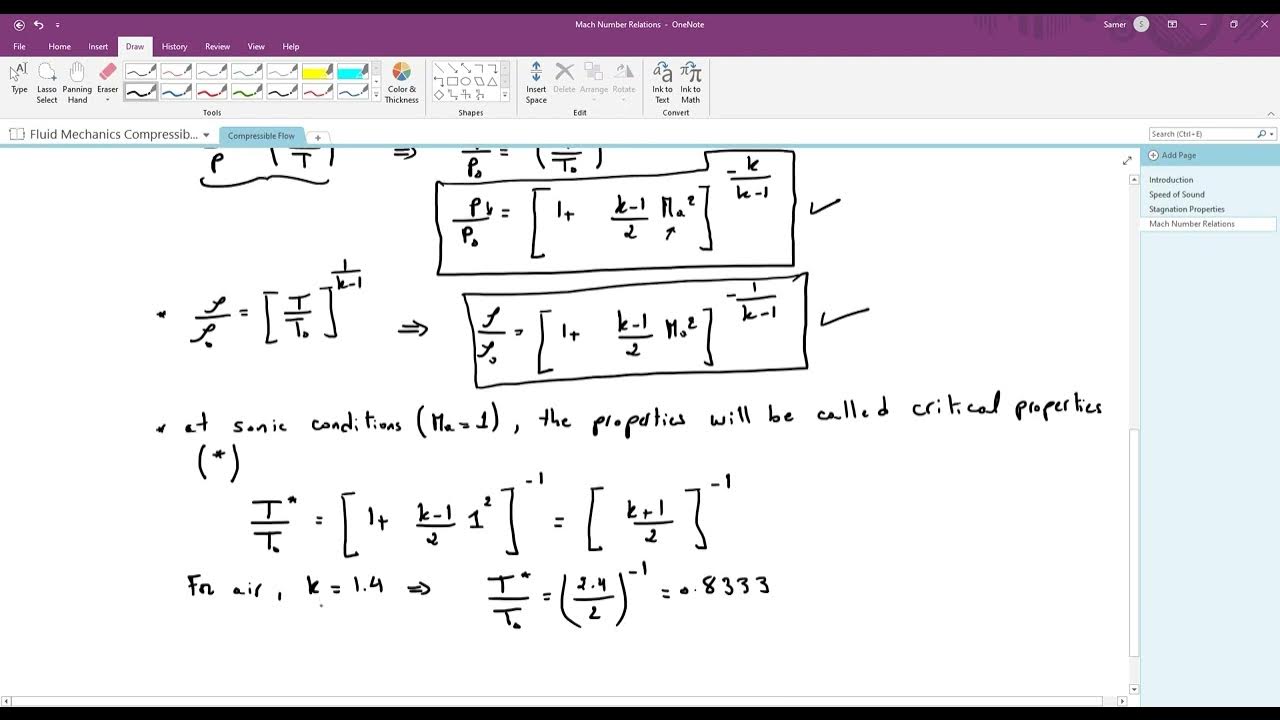 Mach Number Relations - OneNote
Samer
S
File Home Insert Draw History Review View Help
Type
Lasso Select
Panning Hand
Eraser
Color & Thickness
Insert Space
Delete
Arrange
Rotate
Ink to Text
Ink to Math
Tools
Shapes
Edit
Convert
Fluid Mechanics Compressib...
Compressible Flow
+
Search (Ctrl+E)
Add Page
Introduction
Speed of Sound
Stagnation Properties
Mach Number Relations
P/P₀ = [1 + (k-1)/2 Ma²]^(-k/(k-1)) ✓
* ρ/ρ₀ = [T/T₀]^(1/(k-1)) ⇒ ρ/ρ₀ = [1 + (k-1)/2 Ma²]^(-1/(k-1)) ✓
* at sonic conditions (Ma = 1), the properties will be called critical properties
(*)
T*/T₀ = [1 + (k-1)/2 1²]^-1 = [(k+1)/2]^-1
For air, k = 1.4 ⇒ T*/T₀ = (2.4/2)^-1 = 0.8333